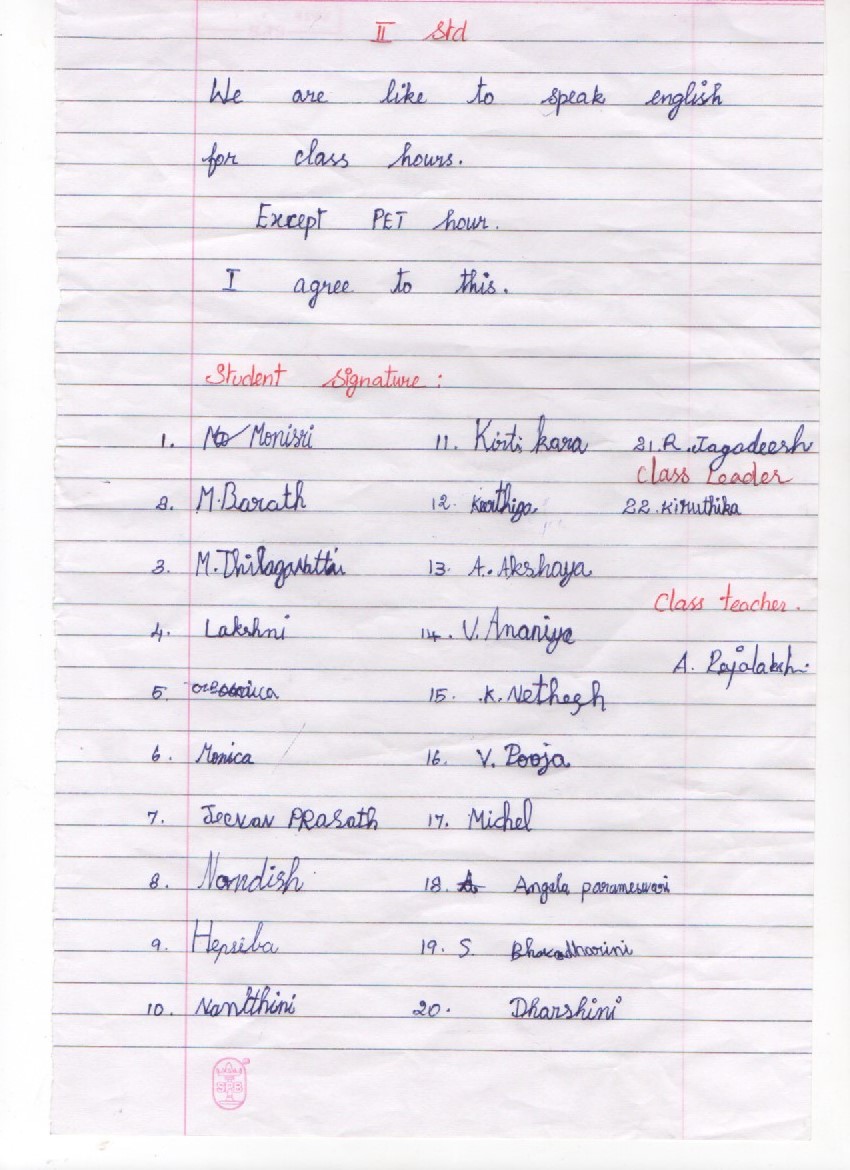 II Std
We are like to speak english
for class hours.
Except PET hour.
I agree to this.
Student Signature :
1. Monisri 11. Kirti kara 21. R. Jagadeesh
Class Leader
2. M. Barath 12. Keerthiga 22. Kiruthika
3. M. 13. A. Akshaya
Class teacher.
4. Lakshni 14. V. Ananiya
A.
5. 15. K. Nethegh
6. Monica 16. V. Pooja
7. Jeevan PRasath 17. Michel
8. Nandish 18. Angela parameswari
9. Hepsiba 19. S.
10. 20. Dharshini
SPB